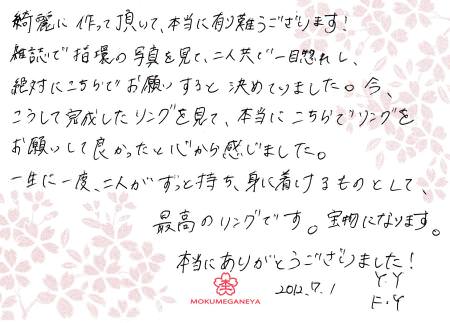 綺麗に作って頂いて、本当に有り難うございます!
雑誌で指環の写真を見て、二人共で一目惚れし、
絶対にこちらでお願いすると決めていました。今、
こうして完成したリングを見て、本当にこちらでリングを
お願いして良かったと心から感じました。
一生に一度、二人がずっと持ち、身に着けるものとして、
最高のリングです。宝物になります。
本当にありがとうございました!
MOKUMEGANEYA
2012.7.1
Y.Y
F.Y